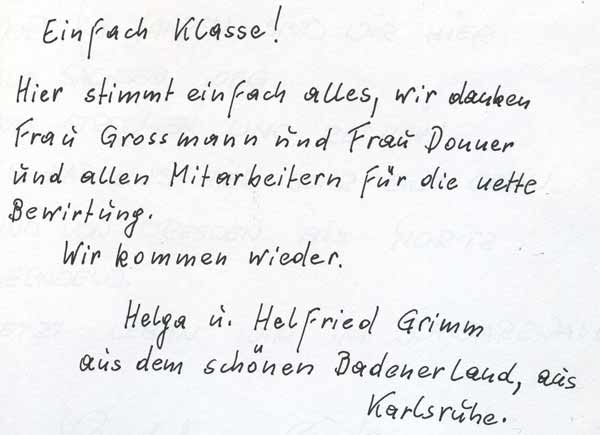 Einfach Klasse!
Hier stimmt einfach alles, wir danken
Frau Grossmann und Frau Donner
und allen Mitarbeitern für die nette
Bewirtung.
Wir kommen wieder.
Helga u. Helfried Grimm
aus dem schönen Badenerland, aus
Karlsruhe.